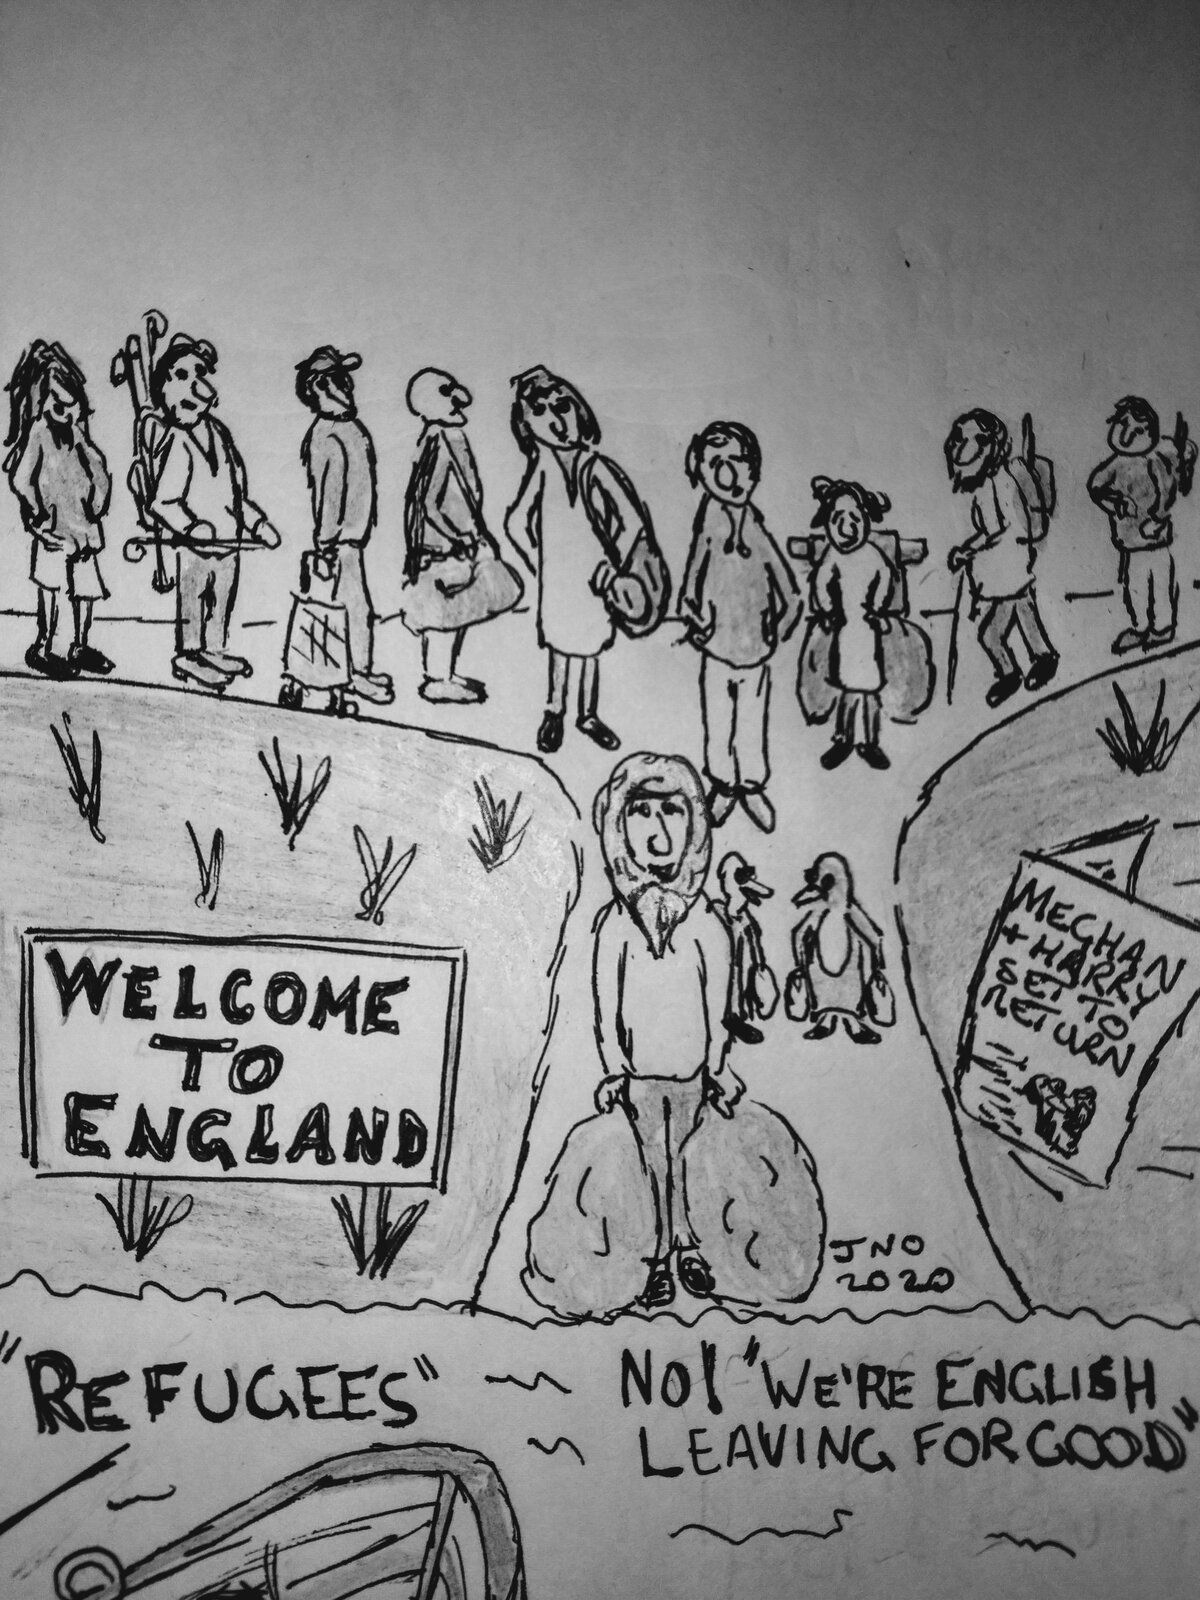 WELCOME
TO
ENGLAND
MEGHAN
+ HARRY
SET TO
RETURN
JNO
2020
"REFUGEES" NO! "WE'RE ENGLISH
LEAVING FOR GOOD"